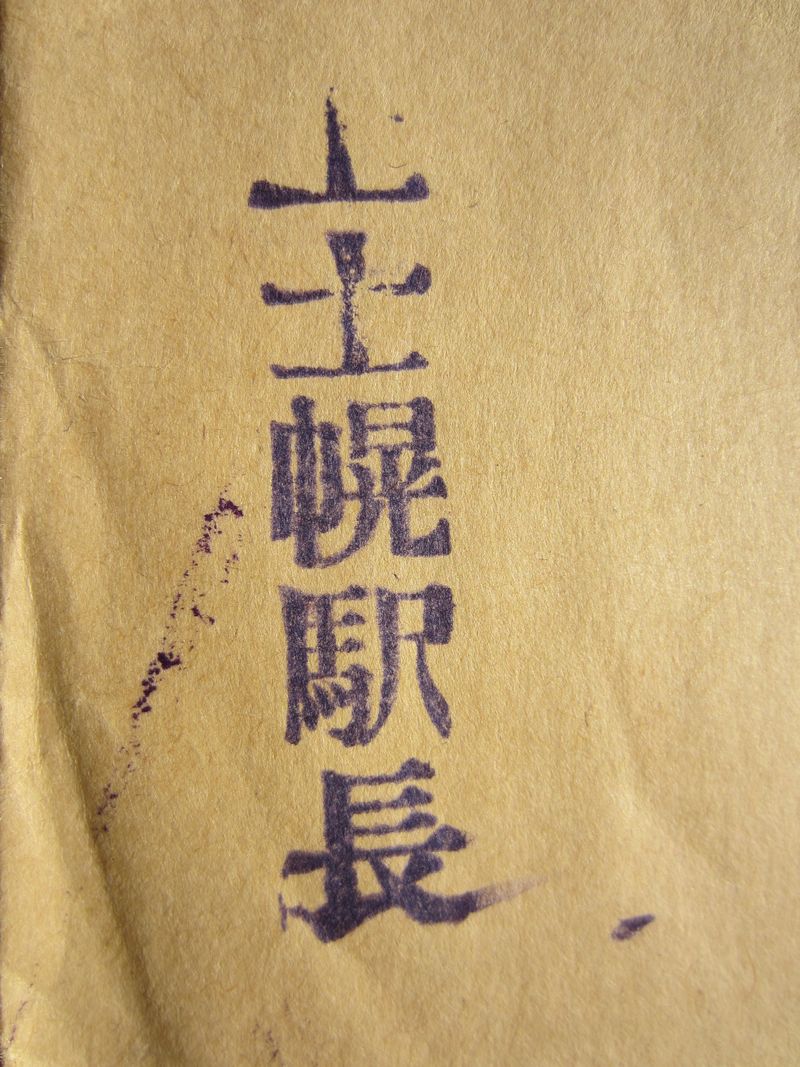 上士幌駅長